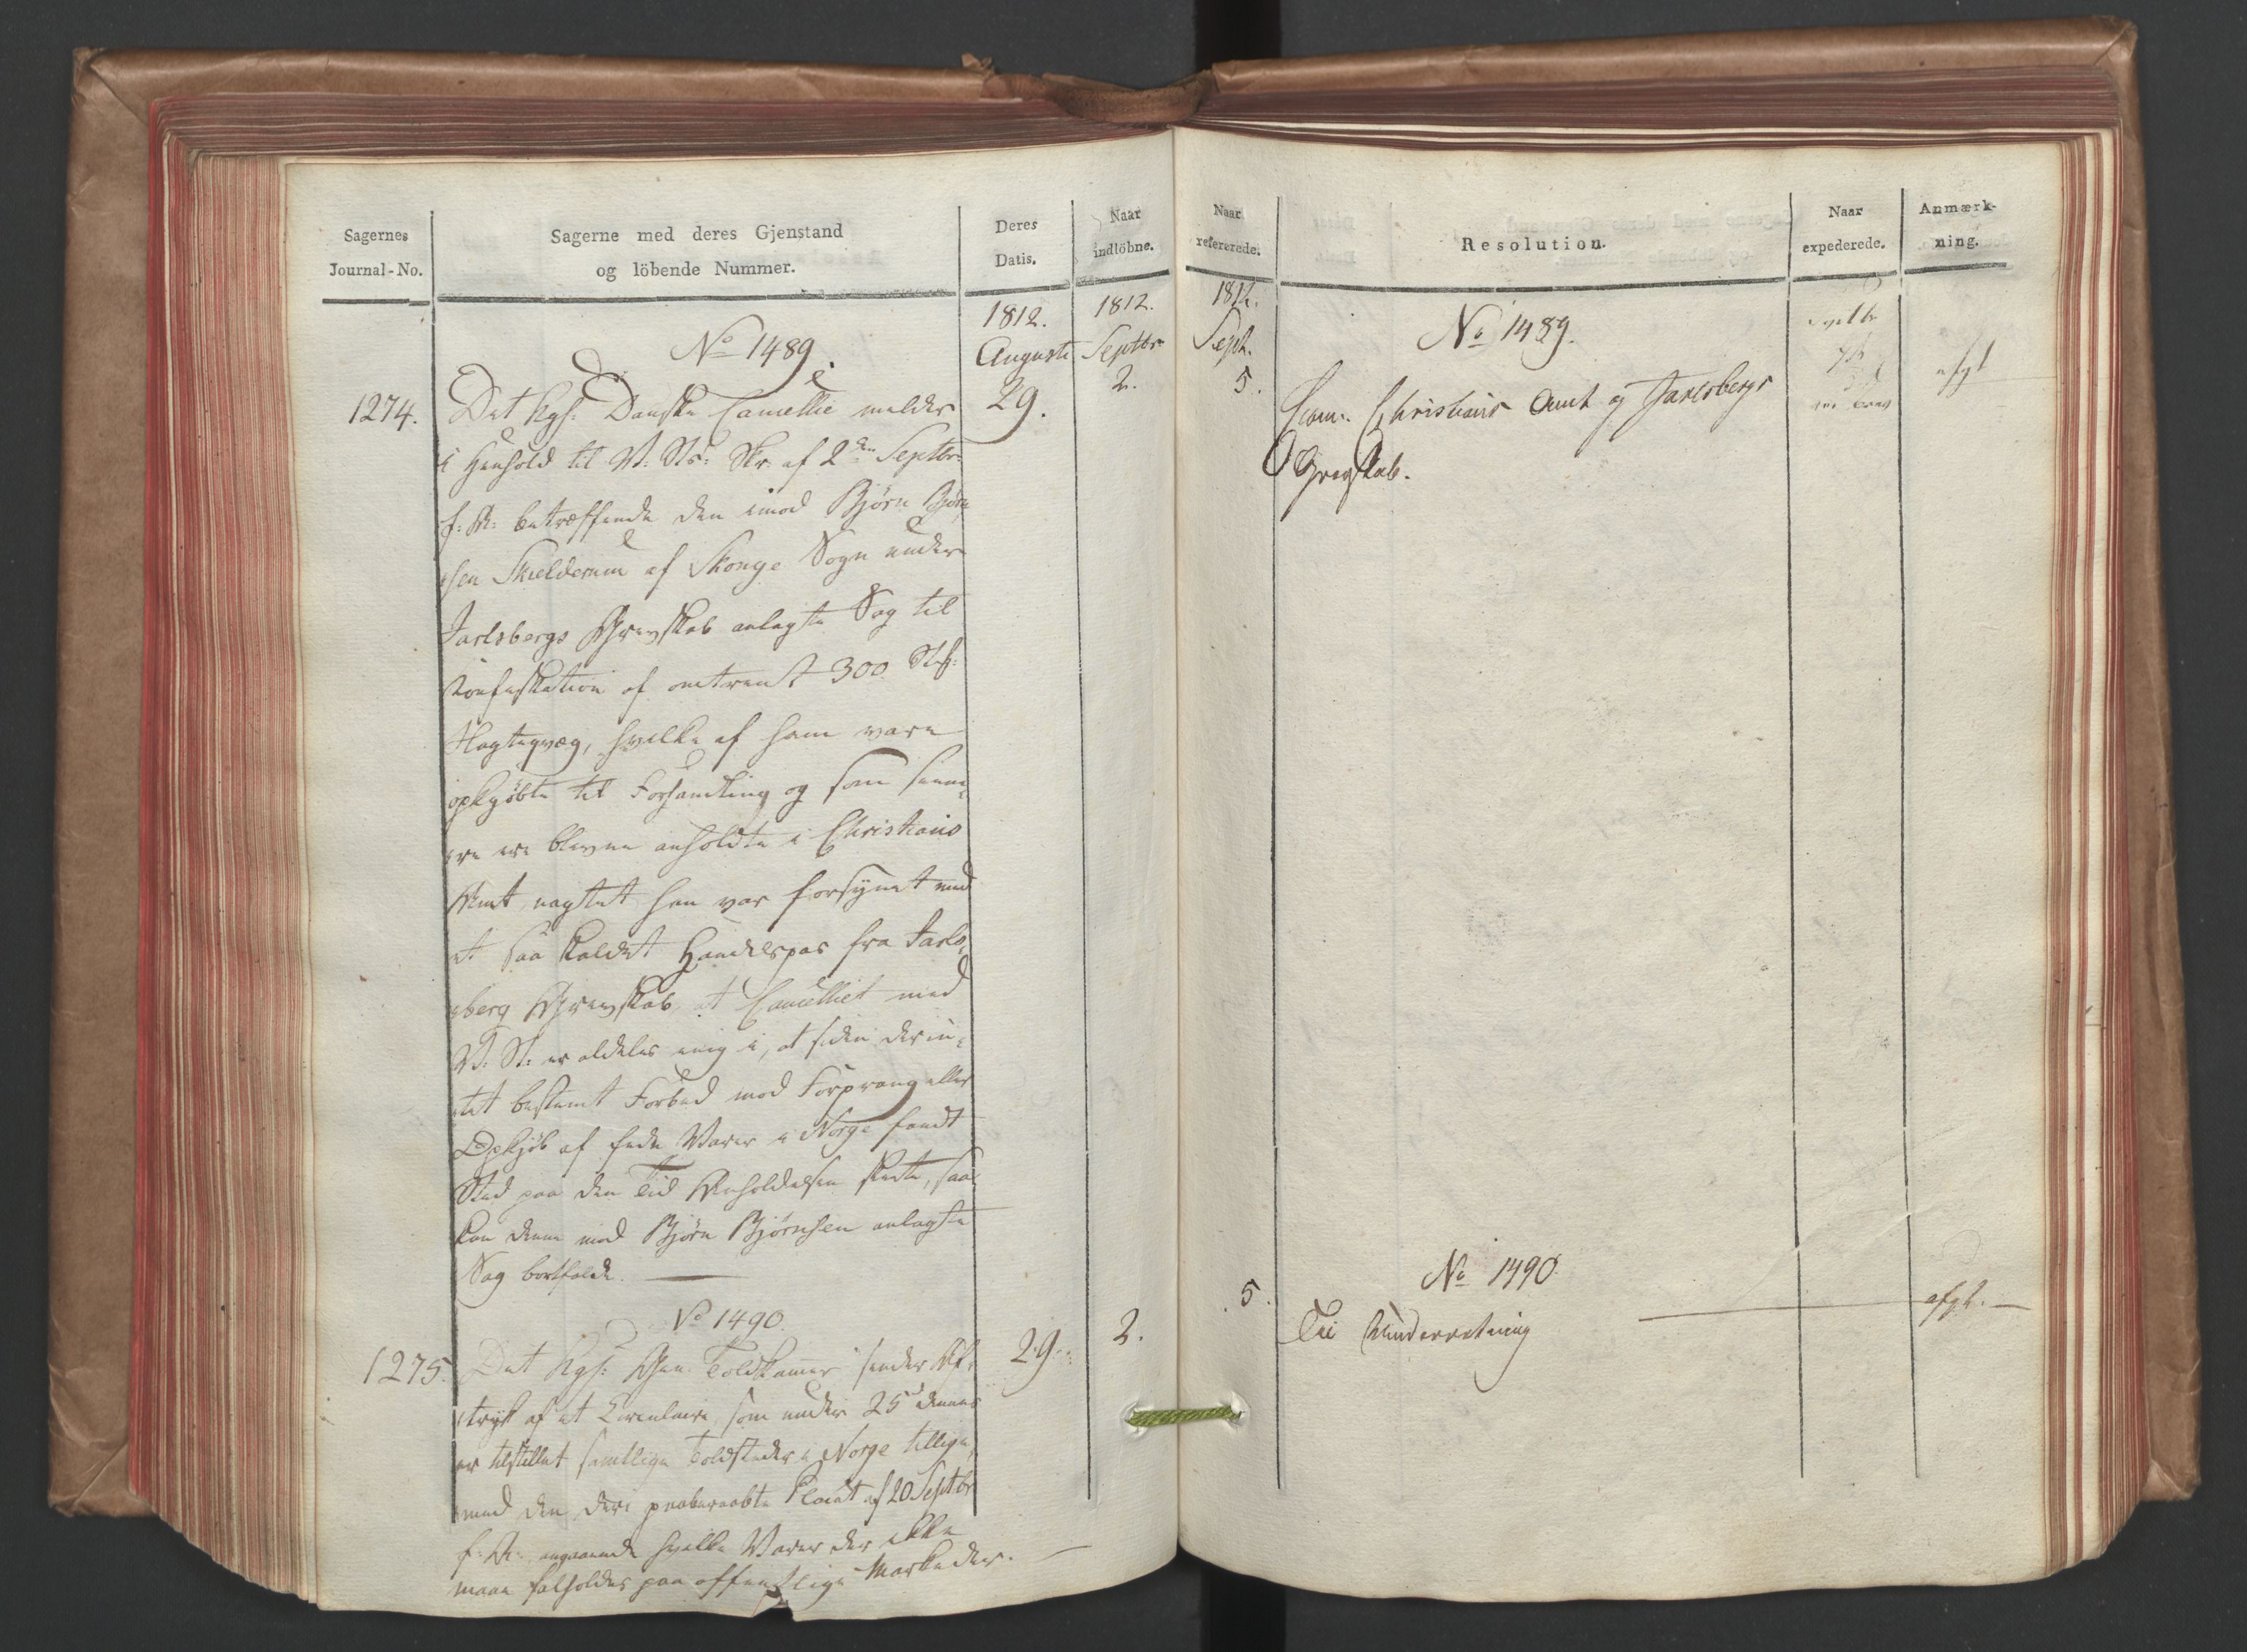 Sagernes
Journal-No.
Sagerne med deres Gjenstand
og löbende Nummer.
Deres
Datis.
Naar
indlöbne.
1812.
Augusti
1812.
Septbr
No 1489.
1274.
Det Kgl: Danske Cancellie melder
29.
2.
i Henhold til V: St: Skr. af 2den Septbr
f: A: betræffende den imod Björn Björn
sen Skielderum af Skouge Sogn under
Jarlsbergs Grevskab anlagte Sag til
Konfiskation af omtrent 300 Stk:
Slagteqvæg, hvilke af ham vare
opkjöbte til Forhandling og som sene
re ere blevne anholdte i Christians
Amt, uagtet han var forsynet med
et saa kaldet Handelspas fra Jarls
berg Grevskab, at Cancelliet med
V: St: er aldeles enig i, at siden der in
tet bestemt Forbud mod Forprang eller
Opkjöb af fede Varer i Norge fandt
Sted paa den Tid Anholdelsen skete, saa
kan denne mod Björn Björnsen anlagte
Sag bortfalde.
No 1490.
1275.
Det Kgl: Gen: Toldkammer sender Af
29.
2.
tryk af et Circulaire, som under 25 dennes
er tilstillet samtlige Toldsteder i Norge tillige
med den deri paaberaabte Placat af 20 Septbr
f: A: angaaende hvilke Varer der ikke
maae falholdes paa offentlige Markeder.
Naar
refererede.
Resolution.
Naar
expederede.
Anmærk-
ning.
1812.
Sept.
5.
No 1489.
Com: Christians Amt og Jarlsbergs
Grevskab.
afgl
No 1490
5.
Til Underretning
afgl.